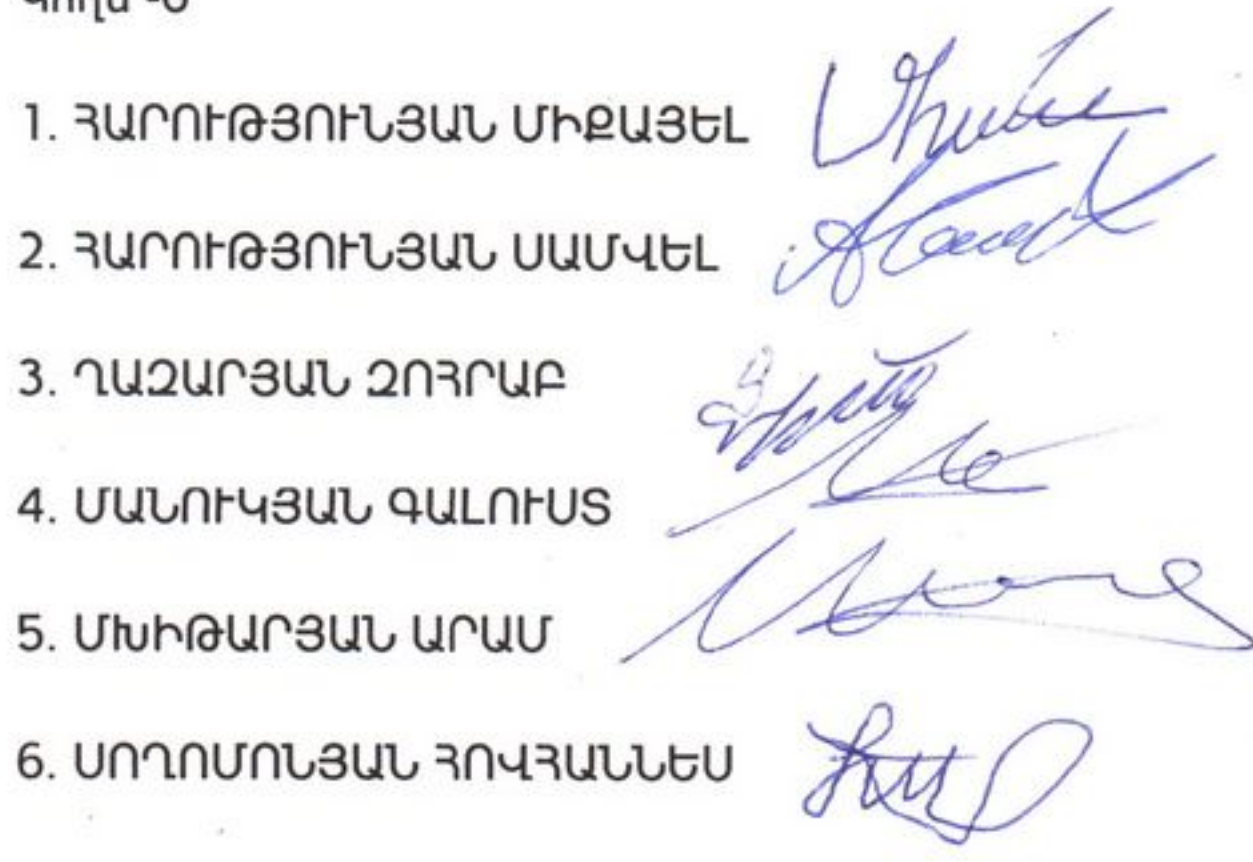 1. ՀԱՐՈՒԹՅՈՒՆՅԱՆ ՄԻՔԱՅԵԼ
2. ՀԱՐՈՒԹՅՈՒՆՅԱՆ ՍԱՄՎԵԼ
3. ՂԱԶԱՐՅԱՆ ԶՈՀՐԱԲ
4. ՄԱՆՈՒԿՅԱՆ ԳԱԼՈՒՍՏ
5. ՄԽԻԹԱՐՅԱՆ ԱՐԱՄ
6. ՍՈՂՈՄՈՆՅԱՆ ՀՈՎՀԱՆՆԵՍ